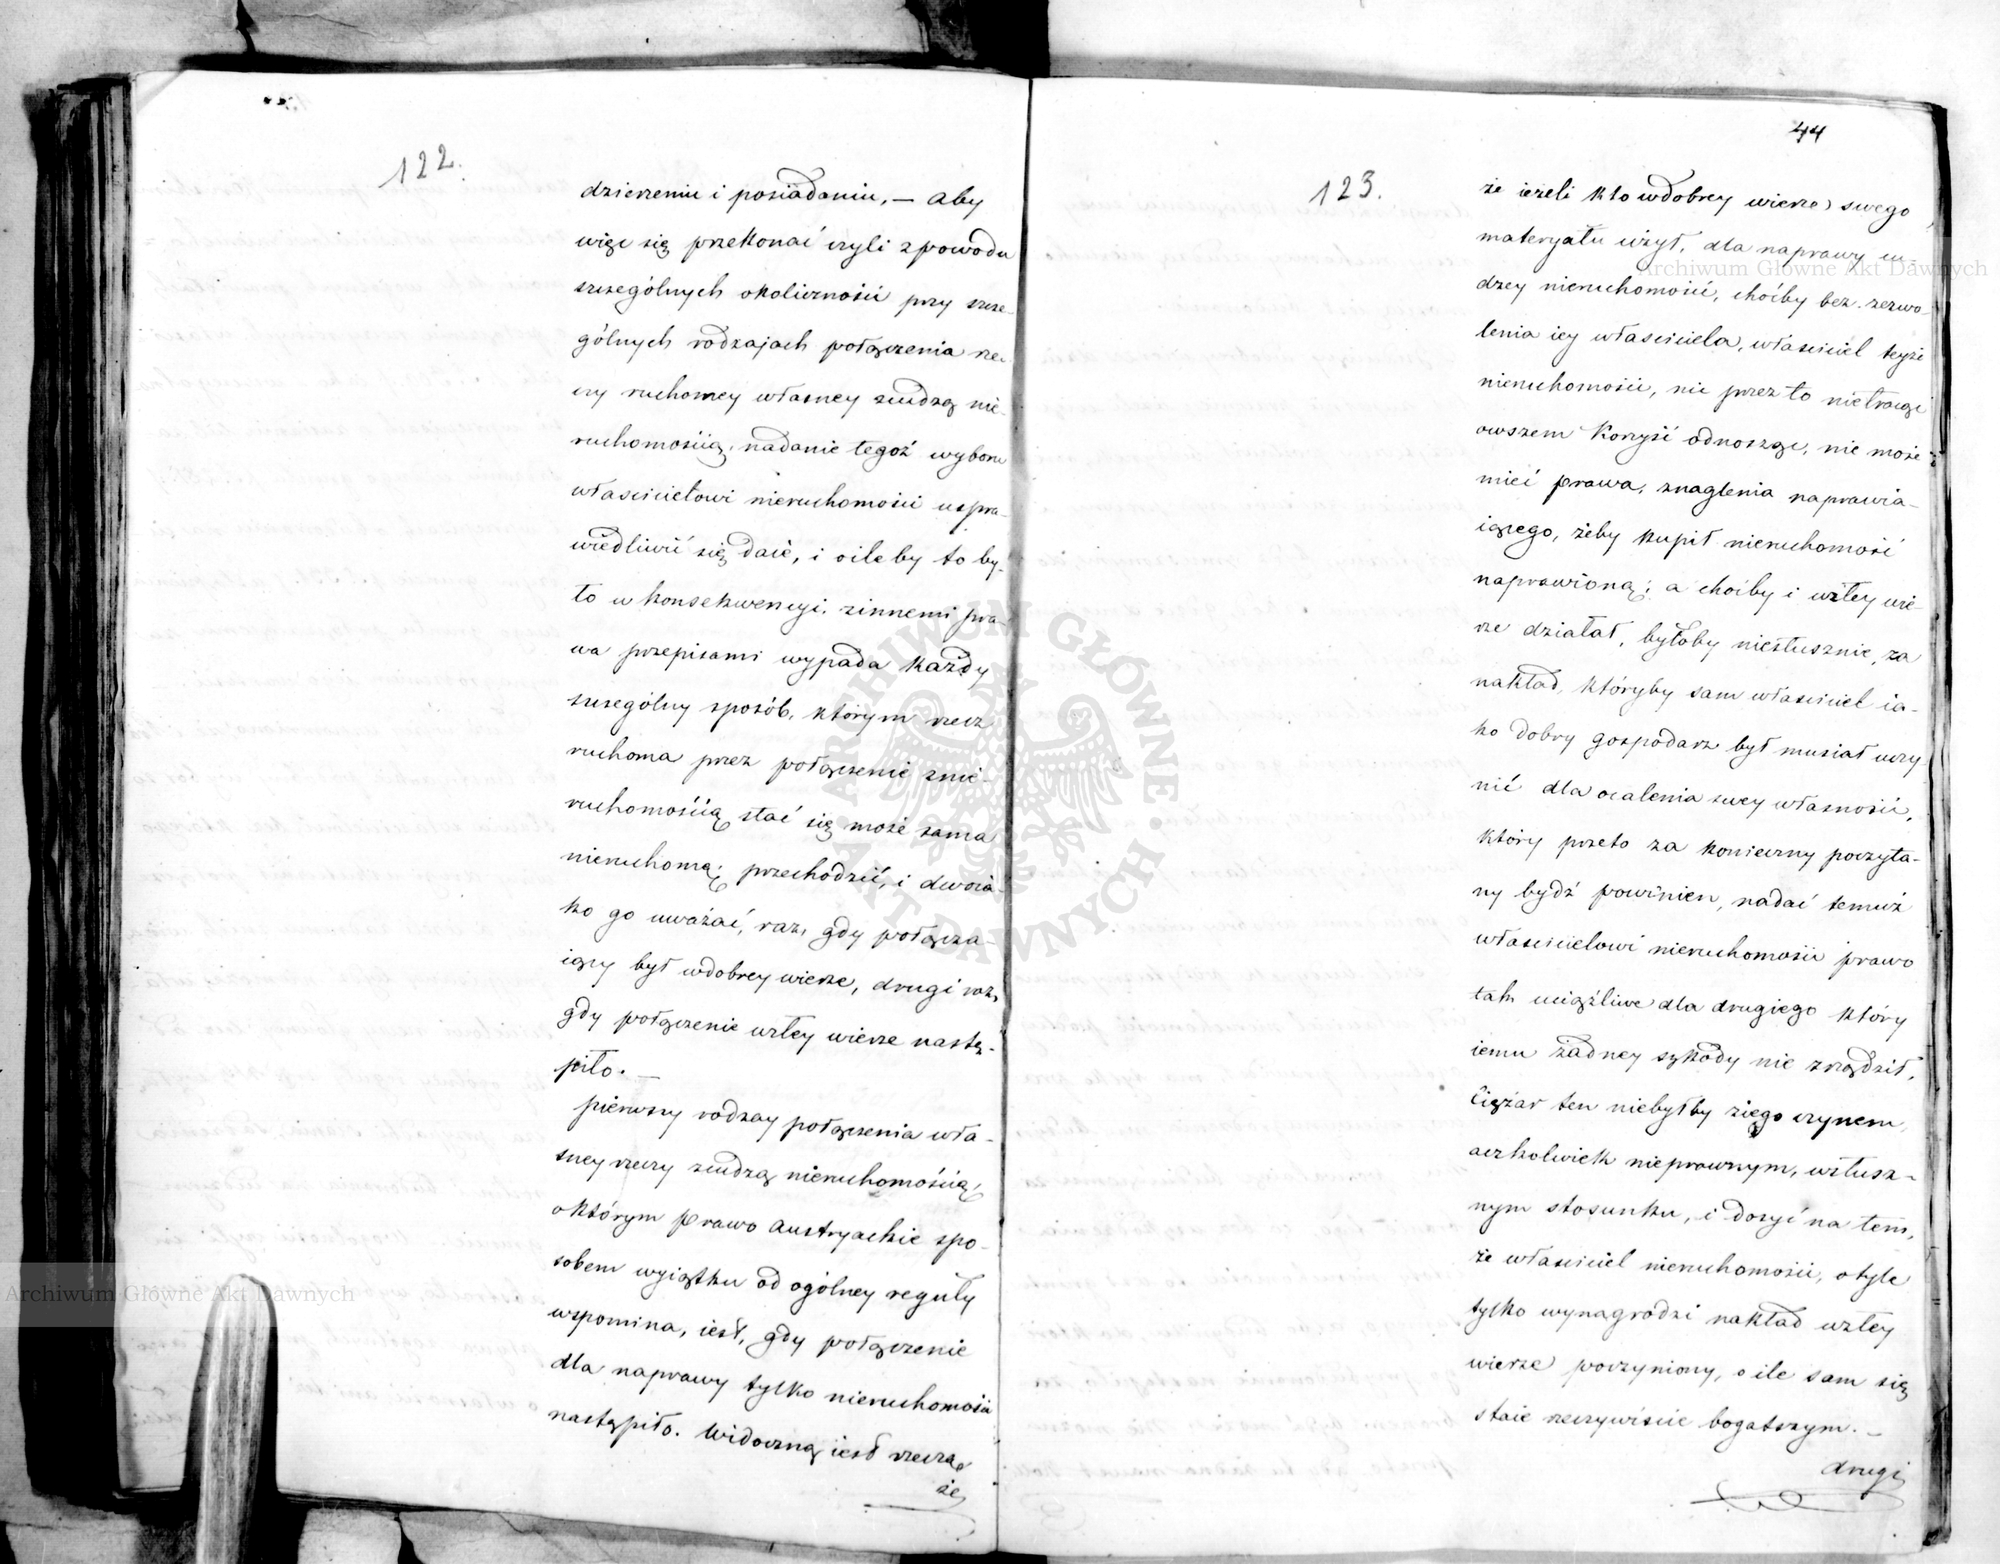 122.
dzierzeniu i posiadaniu, — Aby
więc się przekonać czyli z powodu
szczególnych okoliczności przy szcze-
gólnych rodzajach połączenia rze-
czy ruchomey własney z cudzą nie-
ruchomością, nadanie tegoż wyboru
właścicielowi nieruchomości uspra-
wiedliwić się daie, i oileby to by-
ło w konsekwencyi z innemi pra-
wa przepisami wypada każdy
szczególny sposób, którym rzecz
ruchoma przez połączenie z nie-
ruchomością stać się może sama
nieruchomą; przechodzić, i dwoia-
ko go uważać, raz, gdy połącza-
iący był w dobrey wierze, drugi raz,
gdy połączenie w złey wierze nastą-
piło. —
pierwszy rodzay połączenia wła-
sney rzeczy z cudzą nieruchomością,
o którym prawo Austryackie spo-
sobem wyiątku od ogólney reguły
wspomina, iest, gdy połączenie
dla naprawy tylko nieruchomości
nastąpiło. Widoczną iest rzeczą
że
44
123.
że ieżeli kto w dobrey wierze swego
materyału użył, dla naprawy cu-
dzey nieruchomości, choćby bez zezwo-
lenia iey właściciela, właściciel teyże
nieruchomości, nic przez to nietracąc
owszem korzyść odnosząc, nie może
mieć prawa, znaglenia naprawia-
iącego, żeby kupił nieruchomość
naprawioną; a choćby i w złey wie-
rze działał, byłoby niesłusznie, za
nakład, któryby sam właściciel ia-
ko dobry gospodarz był musiał uczy-
nić dla ocalenia swey własności,
który przeto za konieczny poczyta-
ny bydź powinien, nadać temuż
właścicielowi nieruchomości prawo
tak uciążliwe dla drugiego który
iemu żadney szkody nie zrządził.
Ciężar ten niebyłby z iego czynem,
aczkolwiek nieprawnym, w słusz-
nym stosunku, i dosyć na tem,
że właściciel nieruchomości, o tyle
tylko wynagrodzi nakład w złey
wierze poczyniony, o ile sam się
staie rzeczywiście bogatszym. —
drugi
Archiwum Główne Akt Dawnych
Archiwum Główne Akt Dawnych
ARCHIWUM GŁÓWNE AKT DAWNYCH